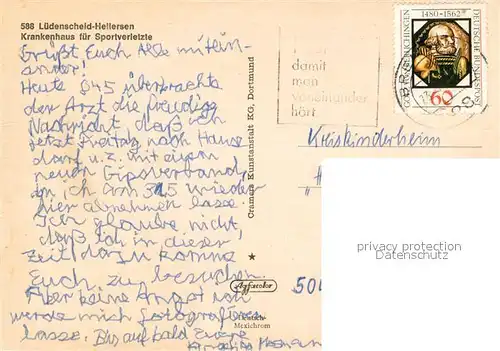 588 Lüdenscheid-Hellersen
Krankenhaus für Sportverletzte
Grüßt Euch Alle mitein-
ander!
Heute 8 45 überbrachte
der Arzt die freudige
Nachricht, daß ich
jetzt Freitag nach Hause
darf u. z. mit einem
neuen Gipsverband
den ich am 31.5 wieder
hier abnehmen lasse.
Ich glaube nicht,
daß ich in dieser
Zeit dazu komme
Euch zu besuchen.
Aber keine Angst ich
werde mich fotografieren
lasse. Bis auf bald Eure
Cramers Kunstanstalt KG, Dortmund
Agfacolor
Mexichrom
damit
man
voneinander
hört
GÖTZ VON BERLICHINGEN
1480-1562
DEUTSCHE BUNDESPOST
60
Kreiskinderheim
500
privacy protection
watermark